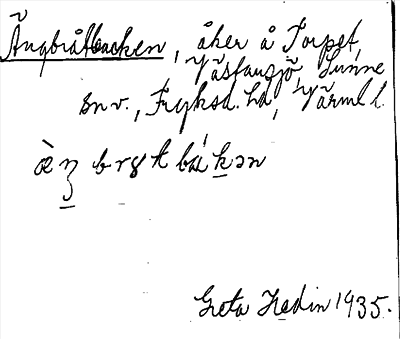 Ängbråtbacken, åker å Torpet,
Västansjö, Sunne
sn v., Fryksd. hd, Värml l.
Greta Hedin 1935.